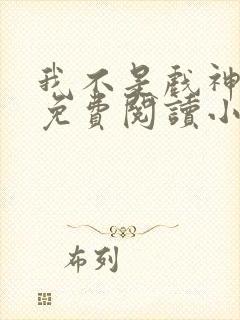 我不是戲神
免費閱讀小
布列